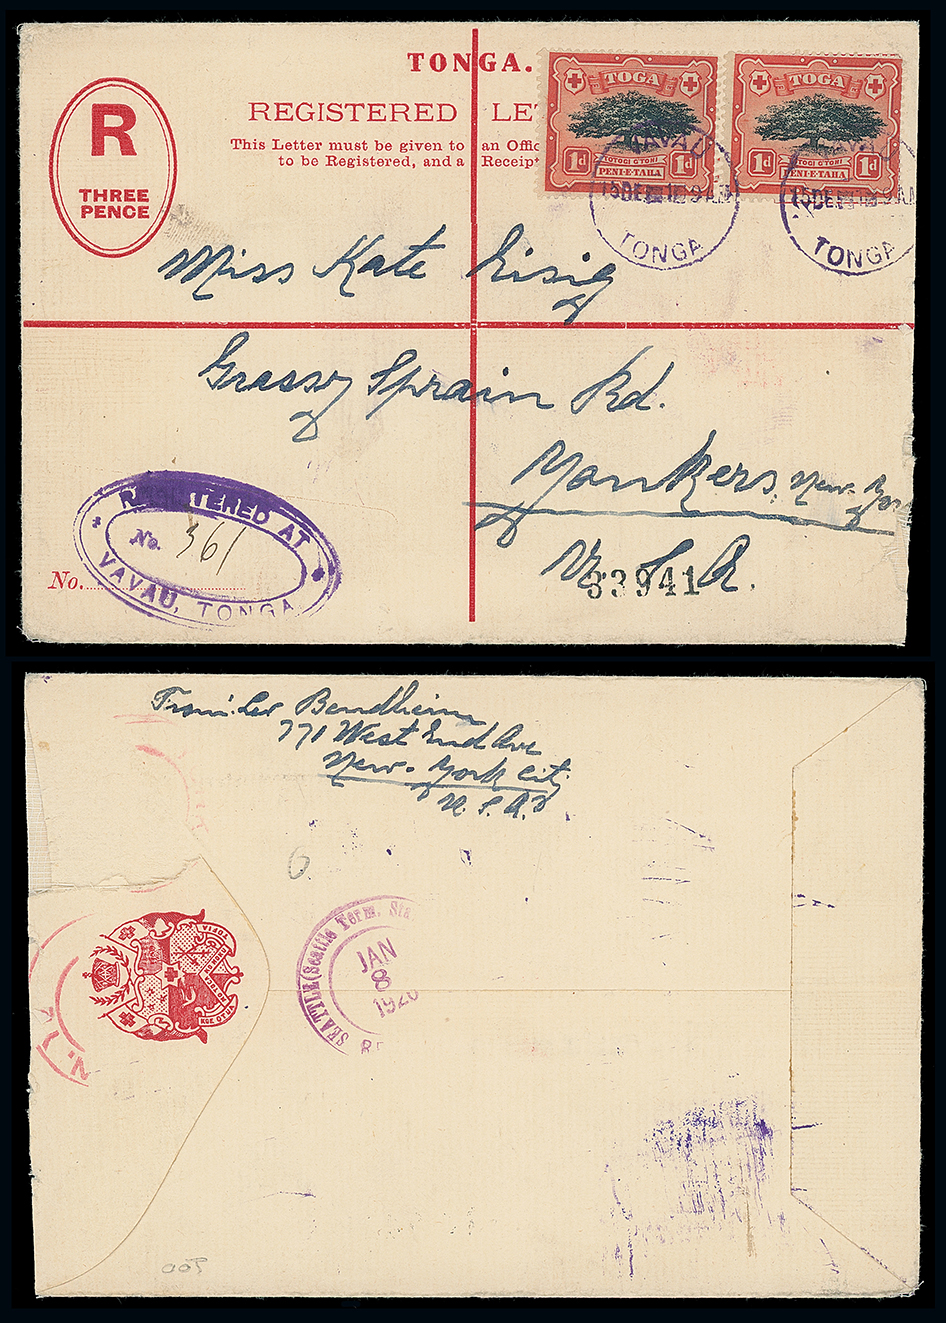 TONGA.
R
THREE
PENCE
REGISTERED LE
This Letter must be given to an Offic
to be Registered, and a Receipt
TOGA
TOTOGI G'TOHI
1d PENI·E·TAHA 1d
TOGA
TOTOGI G'TOHI
1d PENI·E·TAHA 1d
VAVAU
15 DE 9 AM
TONGA
VAU
15 DE 9 AM
TONGA
Miss Kate Eisig
Grassy Sprain Rd.
Yonkers, New Yor
U. S. A.
33941
REGISTERED AT
No. 361
VAVAU, TONGA
No.
From: Lee Bendheim
771 West End Ave
New York City
U. S. A.
6
SEATTLE (Seattle Term. Sta
JAN
8
192
R
KOE OTUA
MO TOGA
TOFIA
N. Y.